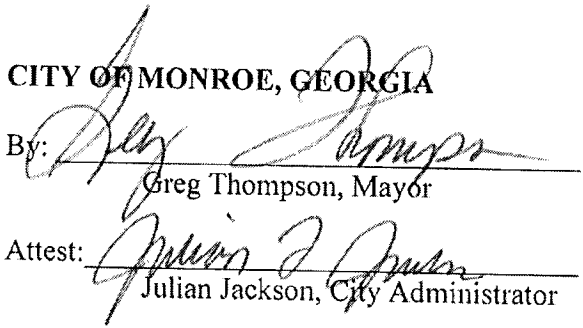 CITY OF MONROE, GEORGIA
By: Greg Thompson
Greg Thompson, Mayor
Attest: Julian J Jackson
Julian Jackson, City Administrator